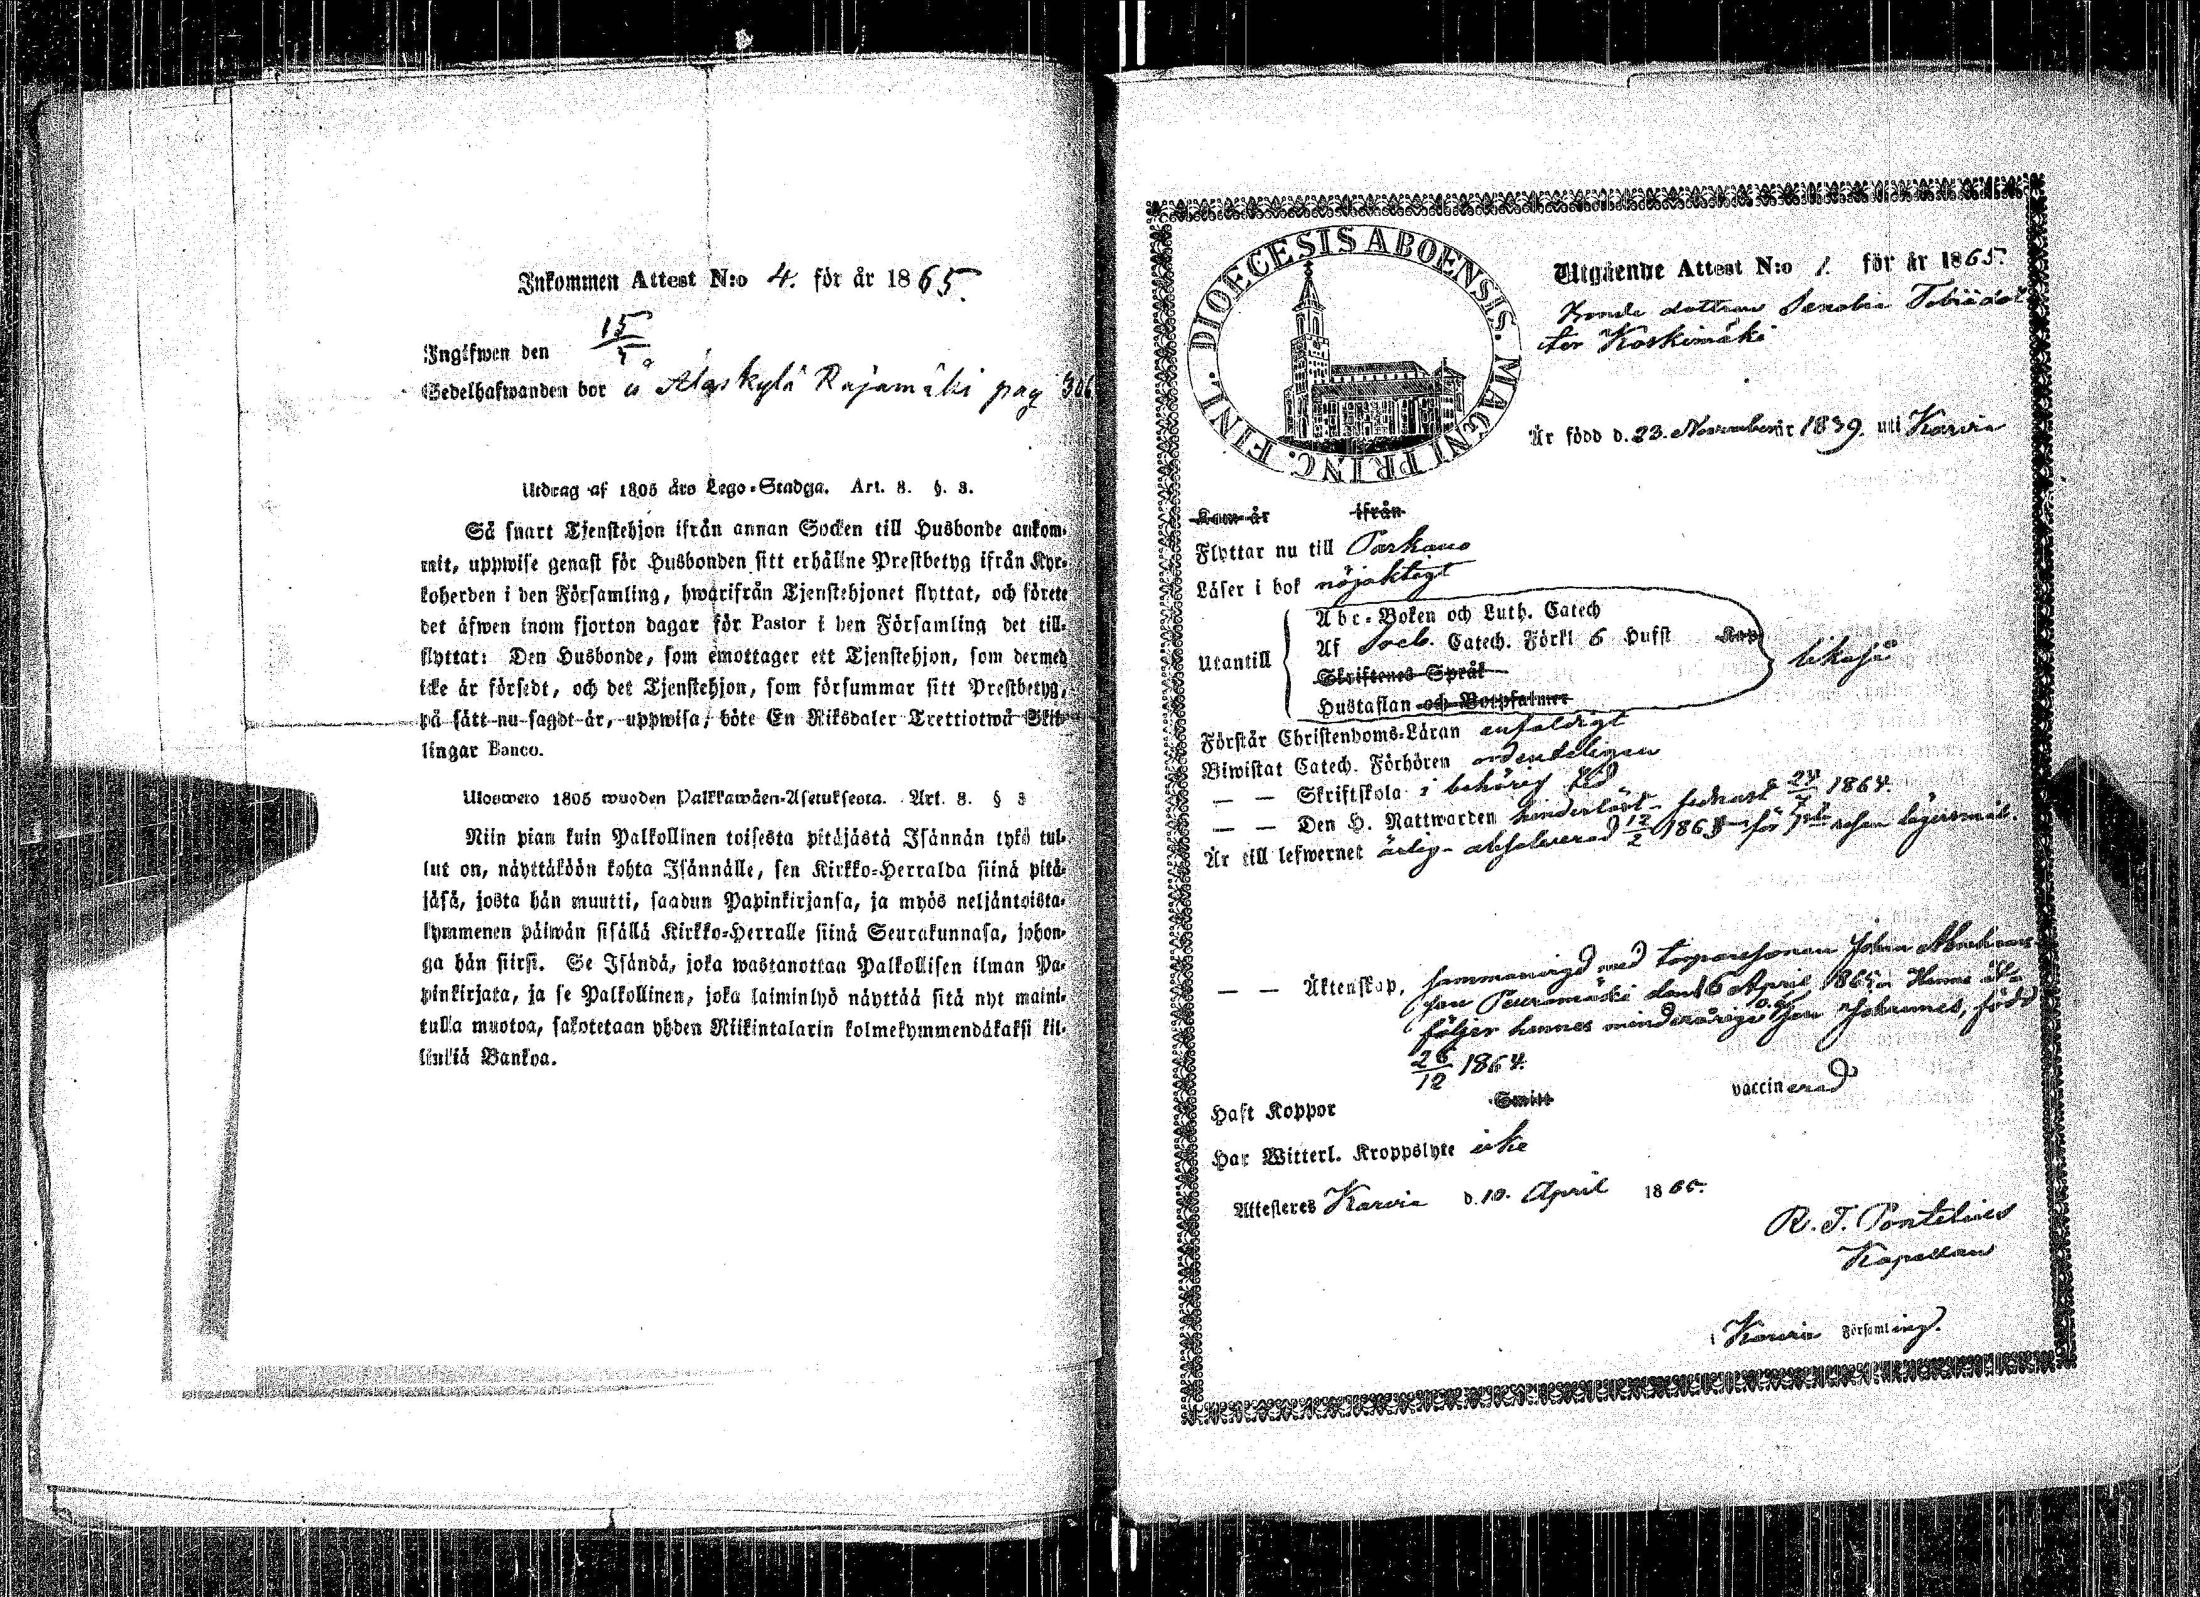 Inkommen Attest N:o 4. för år 1865.
Ingifwen den 15/5
Sedelhafwanden bor å Alaskylä Rajamäki pag 306
Utdrag af 1805 års Lego-Stadga. Art. 8. §. 3.
Så snart Tjenstehjon ifrån annan Socken till Husbonde ankom-
mit, uppwise genast för Husbonden sitt erhållne Prestbetyg ifrån Kyr-
koherden i den Församling, hwarifrån Tjenstehjonet flyttat, och förete
det äfwen inom fjorton dagar för Pastor i den Församling det till-
flyttat: Den Husbonde, som emottager ett Tjenstehjon, som dermed
icke är försedt, och det Tjenstehjon, som försummar sitt Prestbetyg,
på sätt nu sagdt är, uppwisa, böte En Riksdaler Trettiotwå Skil-
lingar Banco.
Uloswero 1805 wuoden Palkkawäen-Asetuksesta. Art. 8. § 3
Niin pian kuin Palkollinen toisesta pitäjästä Isännän tykö tul-
lut on, näyttäköön kohta Isännälle, sen Kirkko-Herralda siinä pitä-
jäsä, josta hän muutti, saadun Papinkirjansa, ja myös neljäntoista-
kymmenen päiwän sisällä Kirkko-Herralle siinä Seurakunnasa, johon-
ga hän siirsi. Se Isändä, joka wastanottaa Palkollisen ilman Pa-
pinkirjata, ja se Palkollinen, joka laiminlyö näyttää sitä nyt maini-
tulla muotoa, sakotetaan yhden Riikintalarin kolmekymmendäkaksi kil-
linkiä Bankoa.
DIOECESIS ABOENSIS. MAGNI PRINC. FINL.
Utgående Attest N:o 1. för år 1865.
Bonde dottren Serafia Tobiädot
ter Koskimäki
Är född d. 23. November år 1839. uti Karvia
Kom år ifrån
Flyttar nu till Parkano
Läser i bok nöjaktigt
Utantill
Abc-Boken och Luth. Catech
Af Sveb. Catech. Förkl 6 Hufst Kap
Skriftenes Språk
Hustaflan och Botpsalmer
likaså
Förstår Christendoms-Läran enfaldigt
Biwistat Catech. Förhören ordentligen
— — Skriftskola i behörig tid
— — Den H. Nattwarden hinderlöst - sednast 24/7 1864.
Är till lefwernet ärlig - absolverad 12/2 1865 för 1sta resan lägersmål.
— — Äktenskap, sammanvigd med torparesonen Johan Abrahams-
son Peuramäki den 16 April 1865. Henne åt-
följer hennes minderårige o.ä. son Johannes, född
26/12 1864.
Haft Koppor Smitt vaccinerad
Har Witterl. Kroppslyte icke
Attesteres Karvia d. 10. April 1865.
R. T. Pontelius
Kapellan
i Karvia Församling.